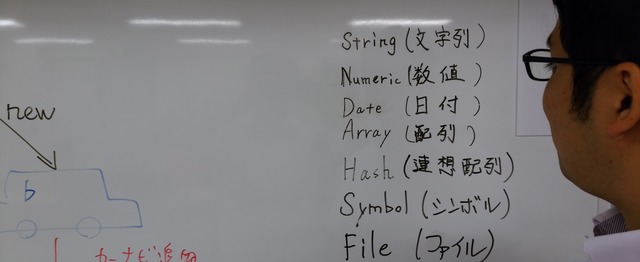 String (文字列)
Numeric (数値)
Date (日付)
Array (配列)
Hash (連想配列)
Symbol (シンボル)
File (ファイル)
new
b
カーナビ追加